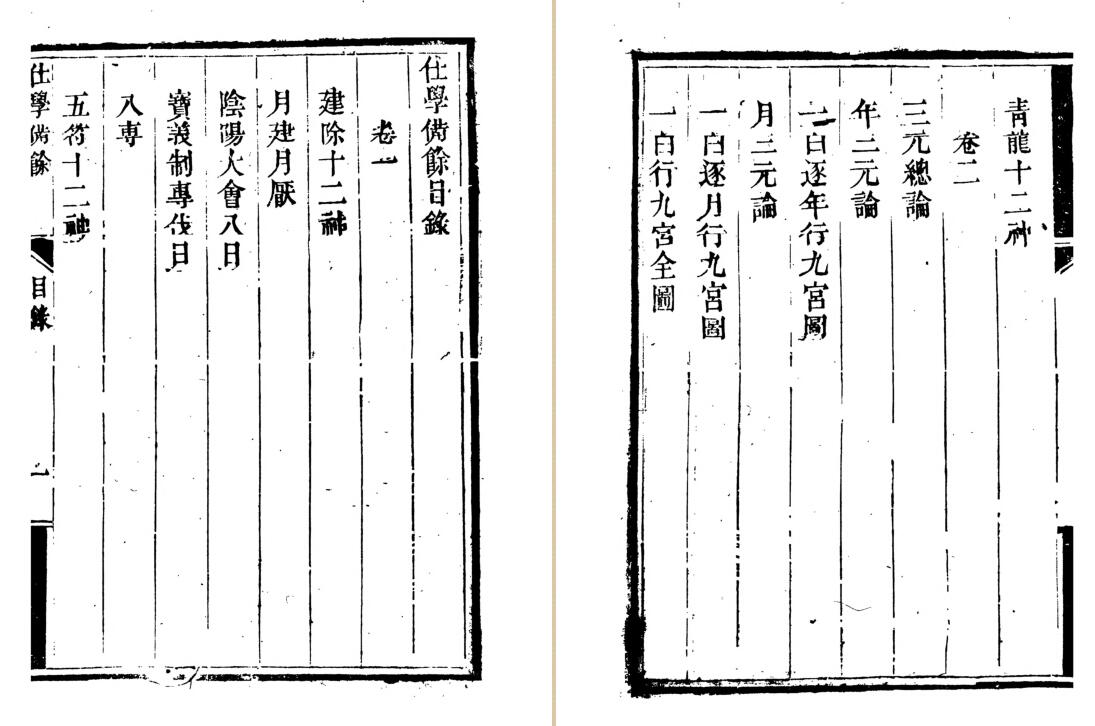 仕學備餘目錄
卷一
建除十二神
月建月厭
陰陽大會八日
寶義制專伐日
八専
五符十二神
仕學備餘
目錄
一
青龍十二神
卷二
三元總論
年三元論
一白逐年行九宮圖
月三元論
一白逐月行九宮圖
一白行九宮全圖